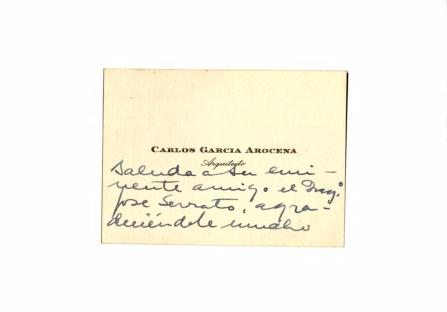 CARLOS GARCIA AROCENA
Arquitecto
Saluda a su emi-
nente amigo el Ingº
José Serrato, agra-
deciéndole mucho